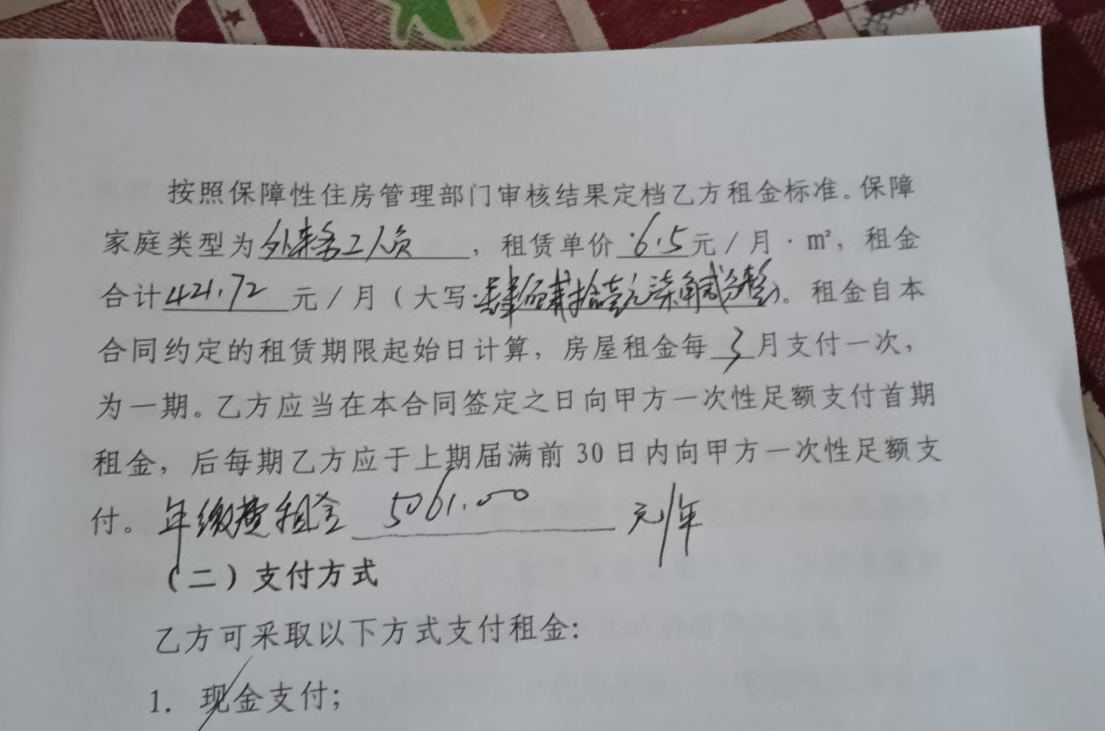 按照保障性住房管理部门审核结果定档乙方租金标准。保障
家庭类型为外来务工人员，租赁单价6.5元/月·m²，租金
合计421.72元/月（大写:肆佰贰拾壹元柒角贰分整）。租金自本
合同约定的租赁期限起始日计算，房屋租金每3月支付一次，
为一期。乙方应当在本合同签定之日向甲方一次性足额支付首期
租金，后每期乙方应于上期届满前30日内向甲方一次性足额支
付。年缴费租金 5061.00 元/年
（二）支付方式
乙方可采取以下方式支付租金：
1. 现金支付；